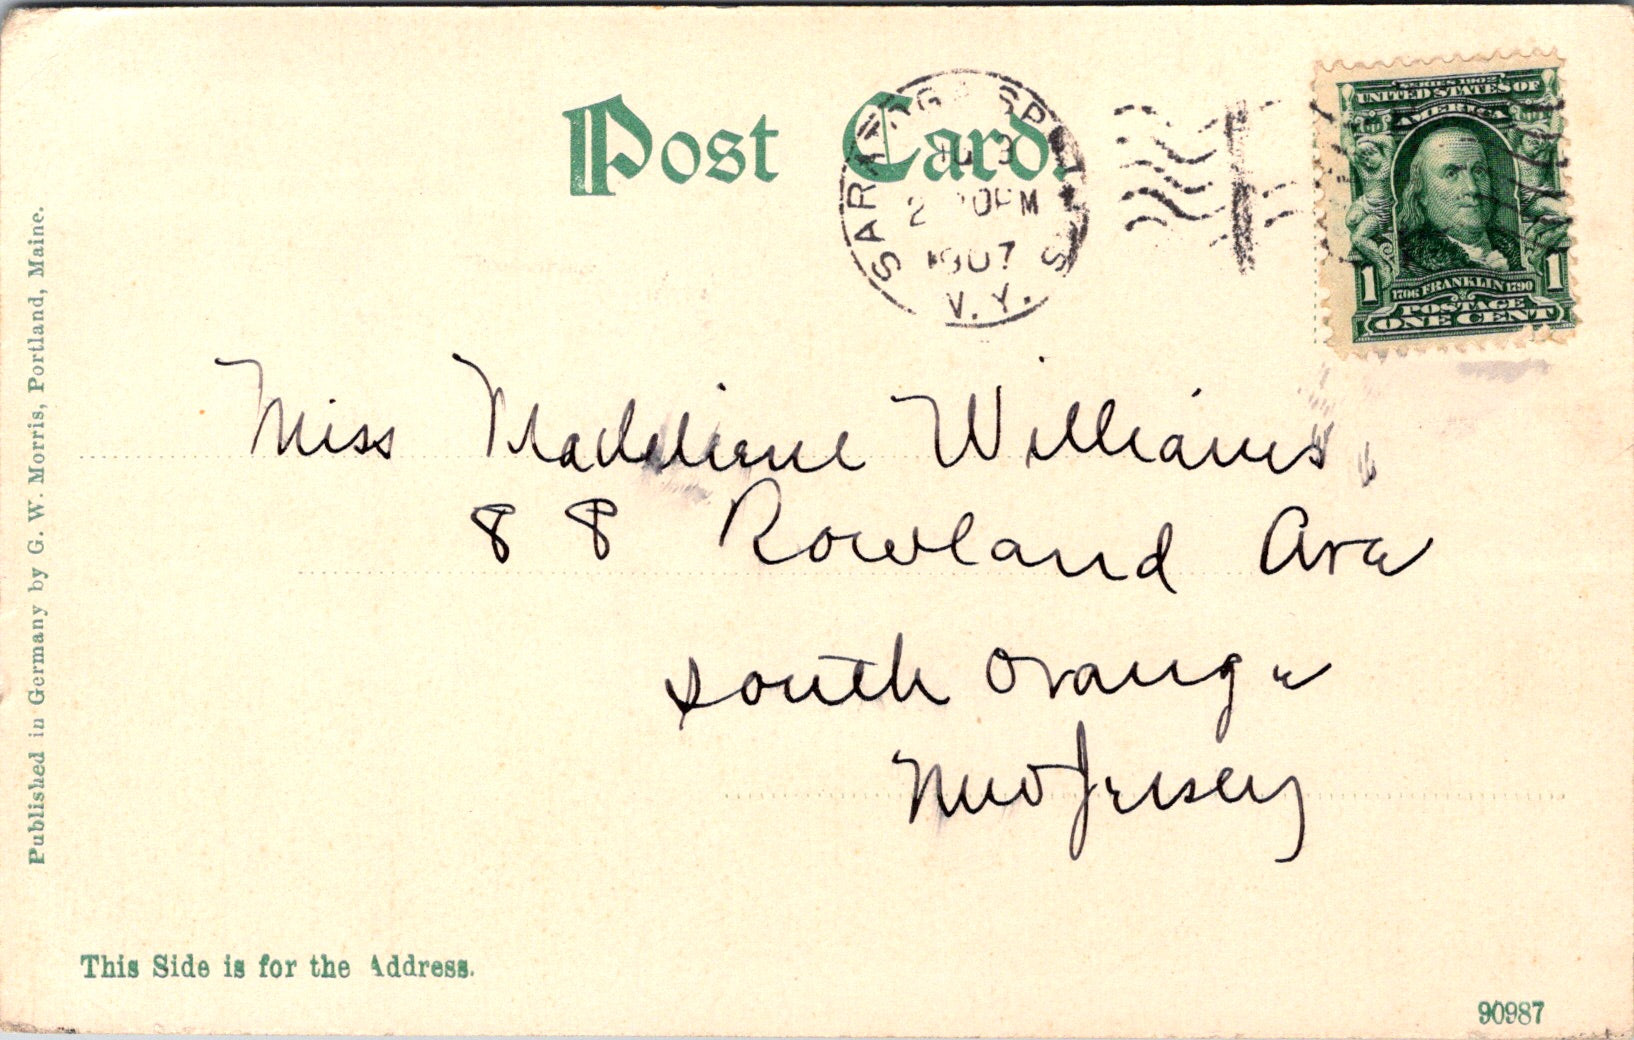 Post Card.
SARATOGA SPGS
3
2 PM
1907
N.Y.
SERIES 1902
UNITED STATES OF
AMERICA
1 1
1706 FRANKLIN 1790
POSTAGE
ONE CENT
Miss Madeliene Williams,
88 Rowland Ave
South Orange
New Jersey
Published in Germany by G. W. Morris, Portland, Maine.
This Side is for the Address.
90987